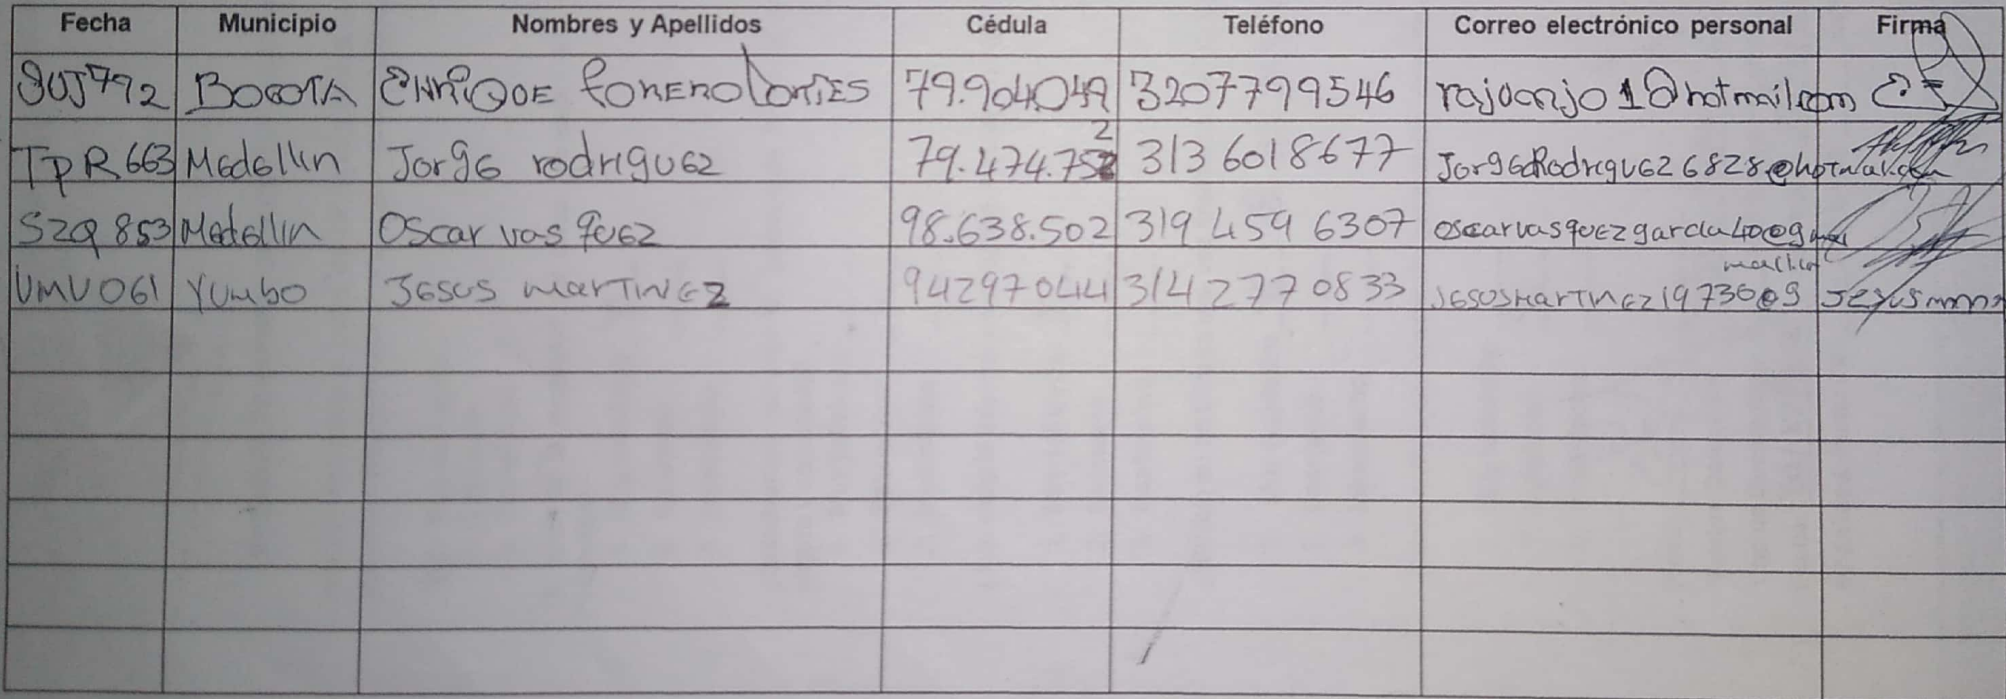 Fecha Municipio Nombres y Apellidos Cédula Teléfono Correo electrónico personal Firma
SUJ792 BOGOTA ENRIQUE 79.904049 3207799546 rajoanjo1@hotmail.com
TPR663 Medellin Jorge rodriguez 79.474.752 313 6018677 JorgeRodriguez6828@hotmail.com
SZQ 853 Medellin Oscar vasquez 98.638.502 319 459 6307 oscarvasquezgarcia40@gmail
UMU061 Yumbo Jesus marTinez 94297044 314 2770833 JesusmarTinez197360@g Jesus